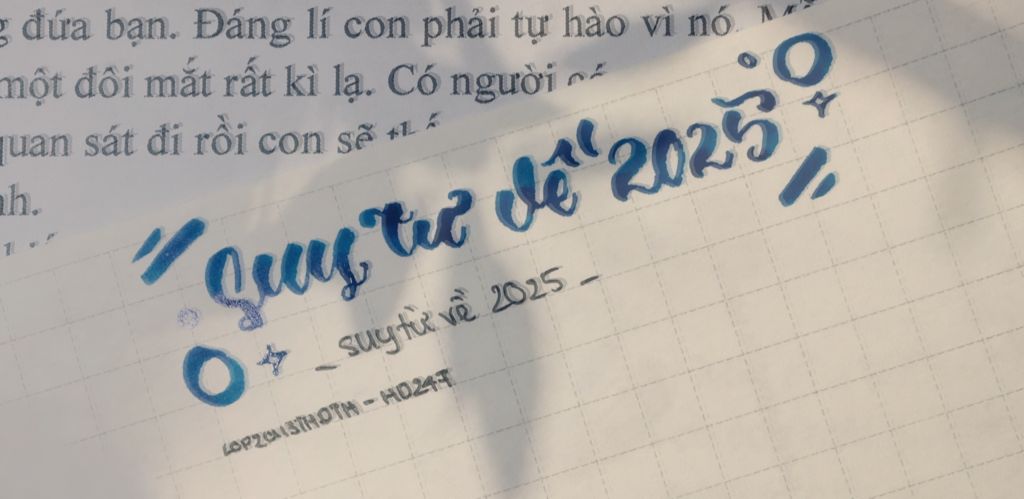 đứa bạn. Đáng lí con phải tự hào vì nó.
một đôi mắt rất kì lạ. Có người
quan sát đi rồi con sẽ
nh.
suy tư về 2025
- suy tư về 2025 -